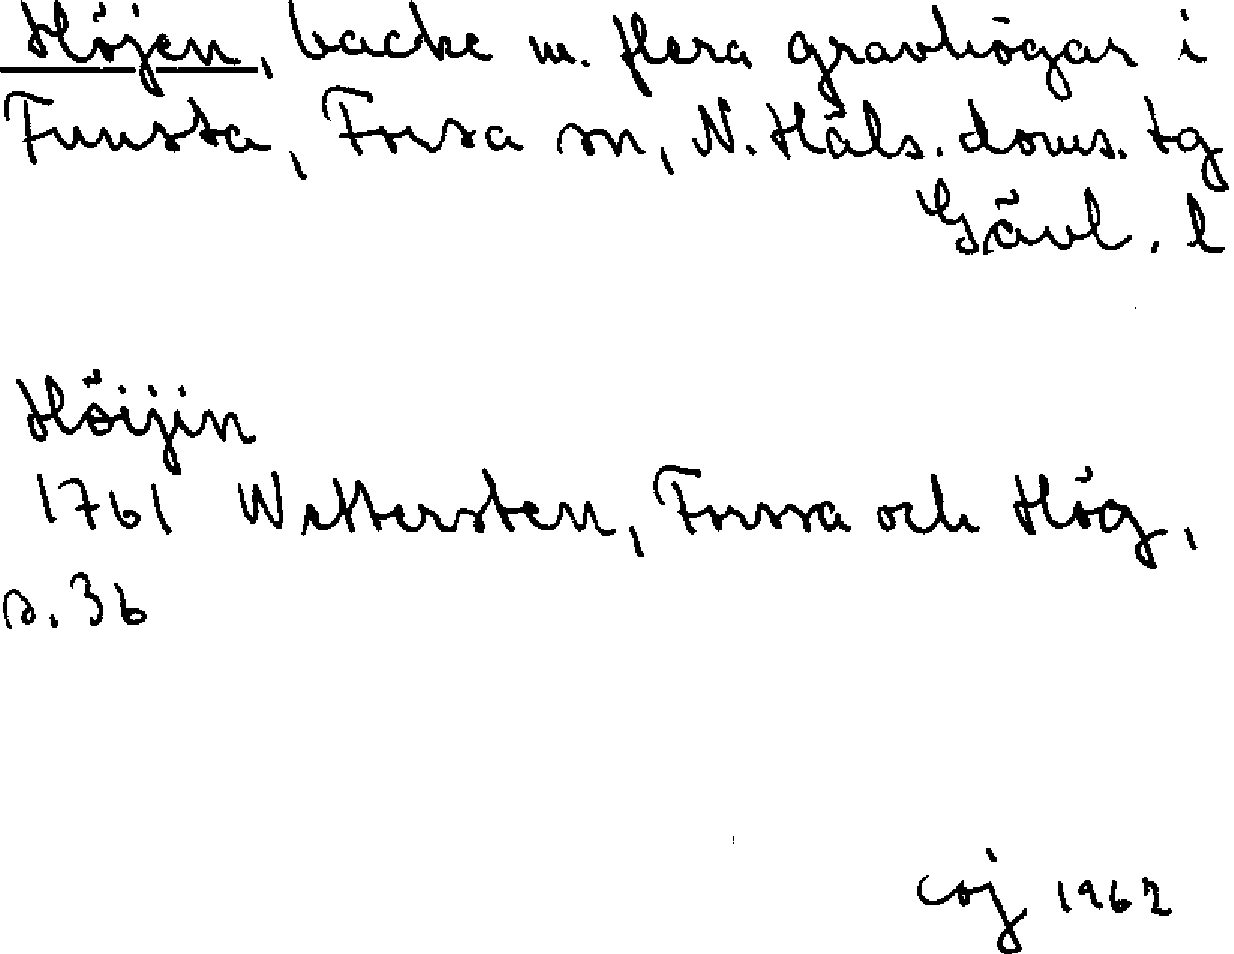 Höjen, backe m. flera gravhögar i
Funsta, Forsa sn, N. Häls. doms. tg
Gävl. l
Höijin
1761 Wettersten, Forssa och Hög,
s. 36
coj 1962